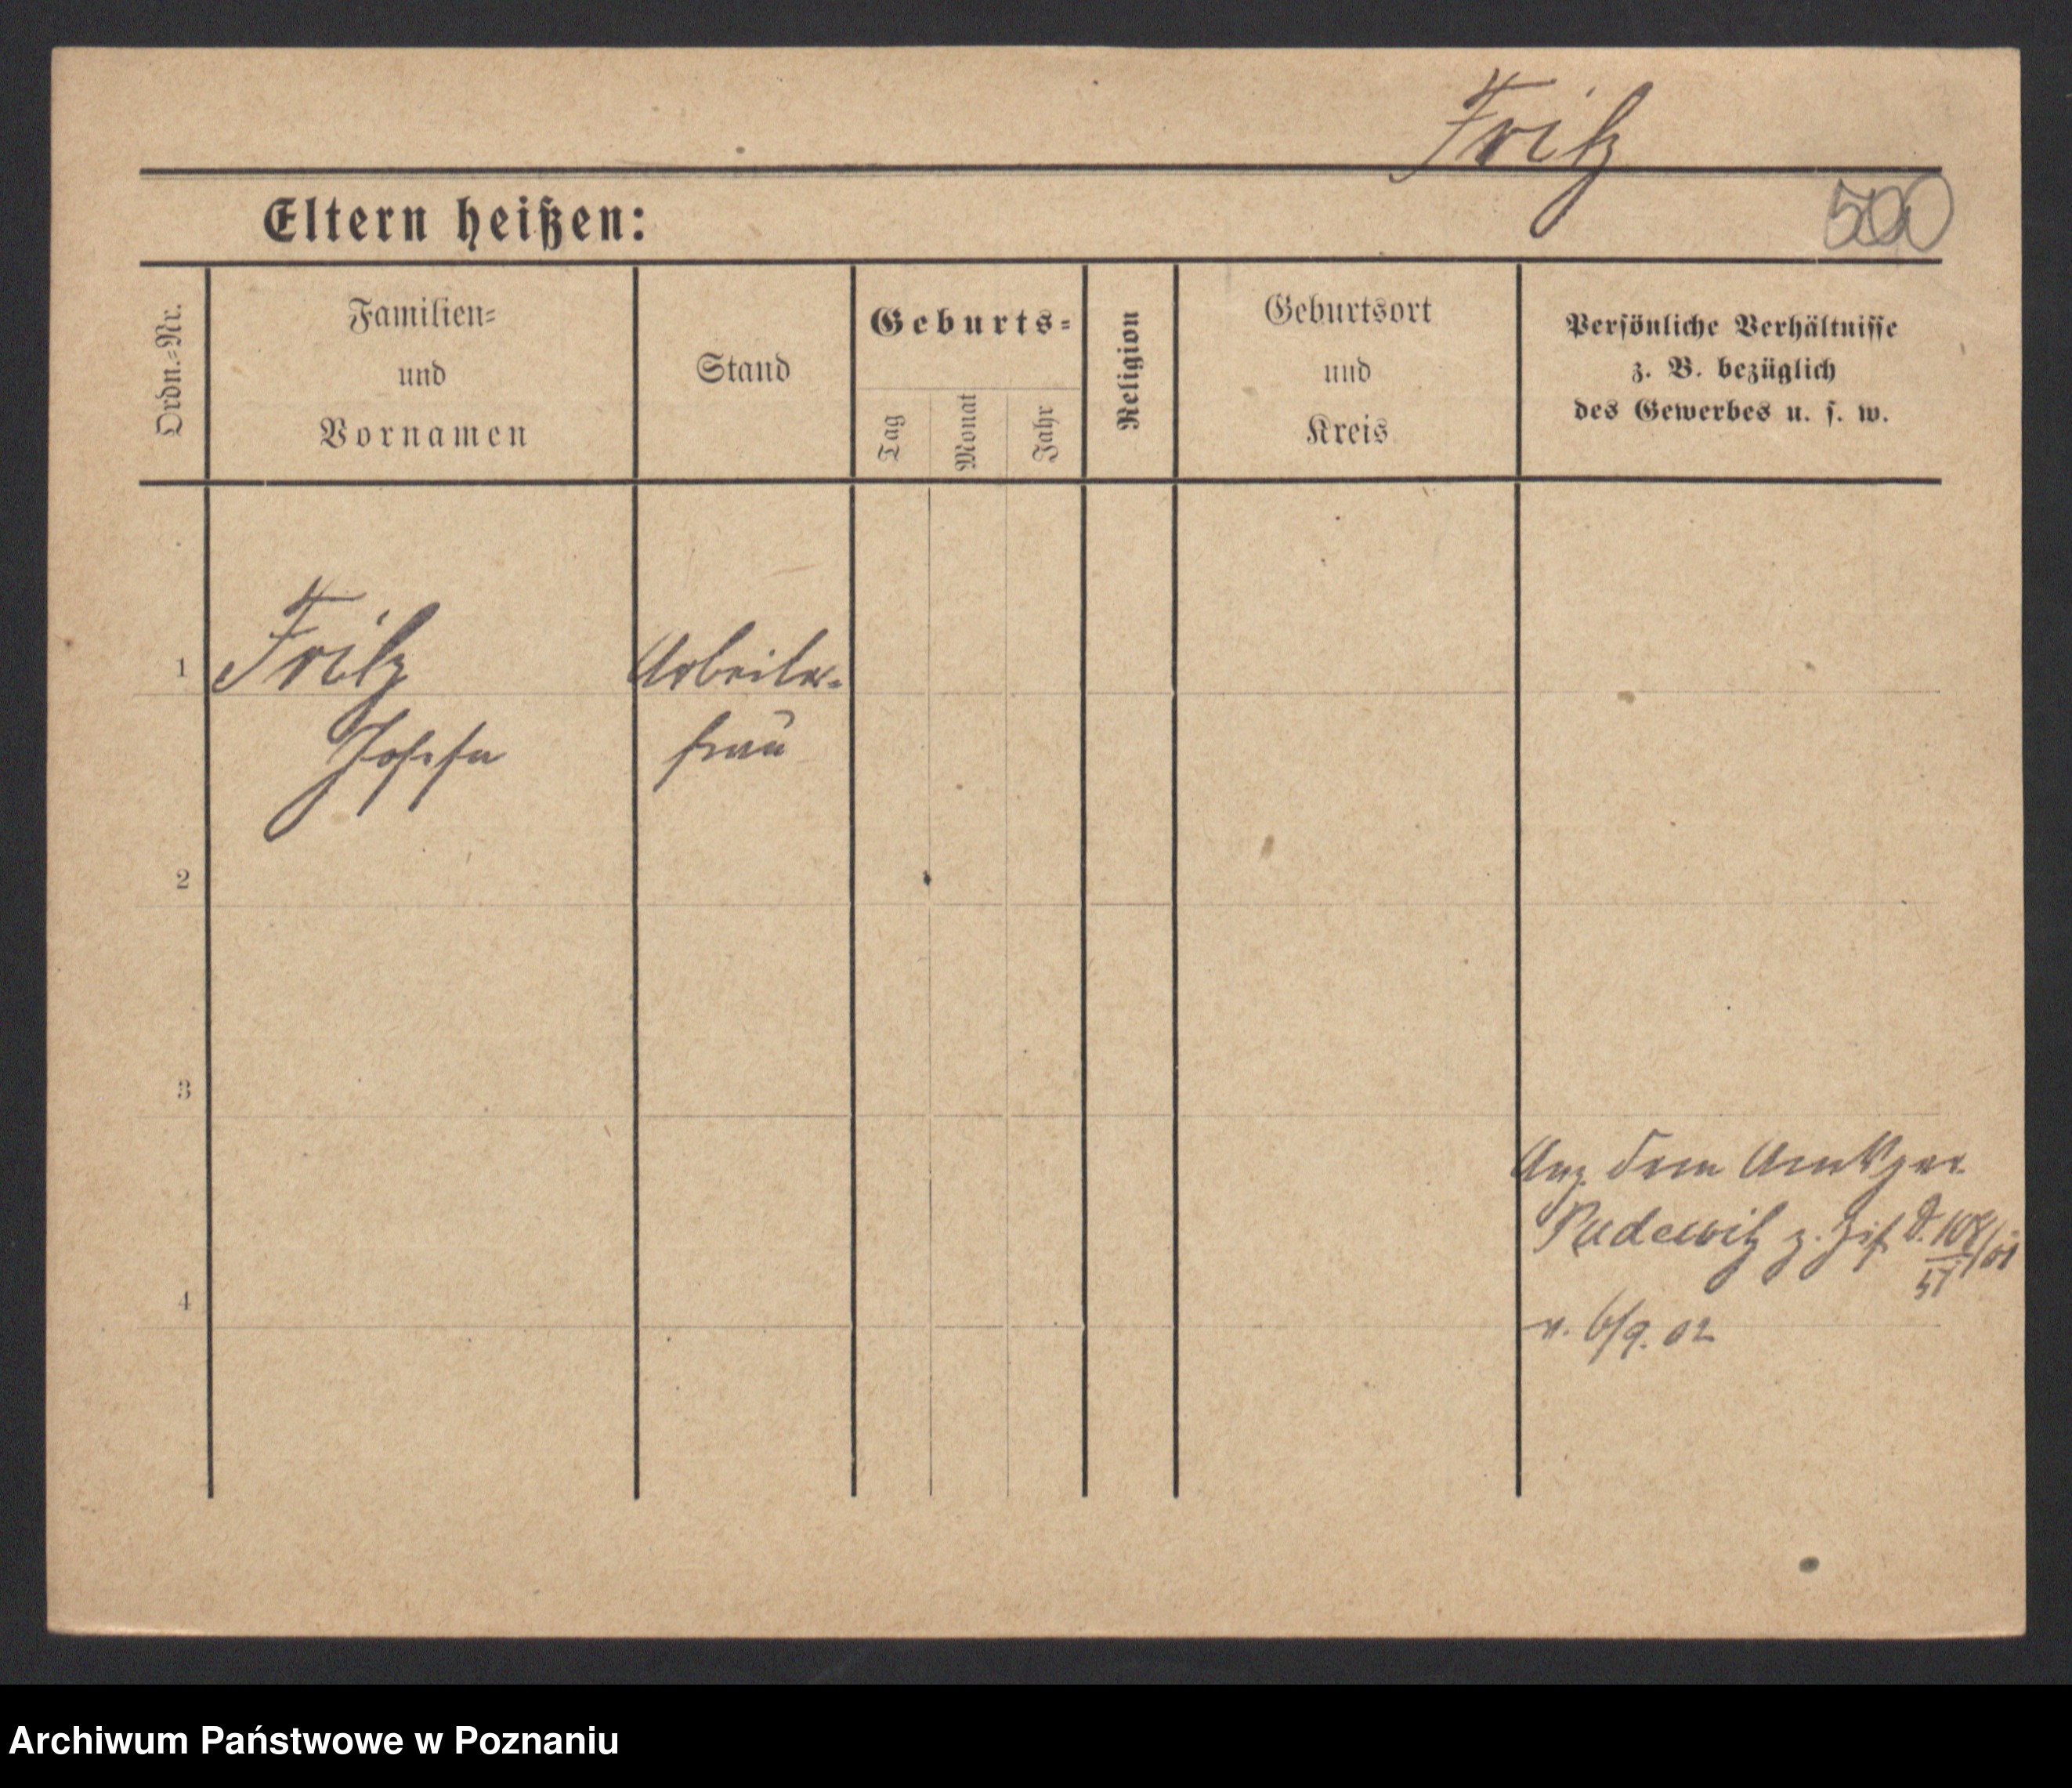 Fritz
Eltern heißen:
500
Ordn.-Nr.
Familien-
und
Vornamen
Stand
Geburts-
Tag
Monat
Jahr
Religion
Geburtsort
und
Kreis
Persönliche Verhältnisse
z. B. bezüglich
des Gewerbes u. s. w.
1
Fritz
Arbeiter-
Josefa
frau
2
3
4
Ang. dem Amtsger.
Pudewitz z.
v. 6/9. 02
Archiwum Państwowe w Poznaniu